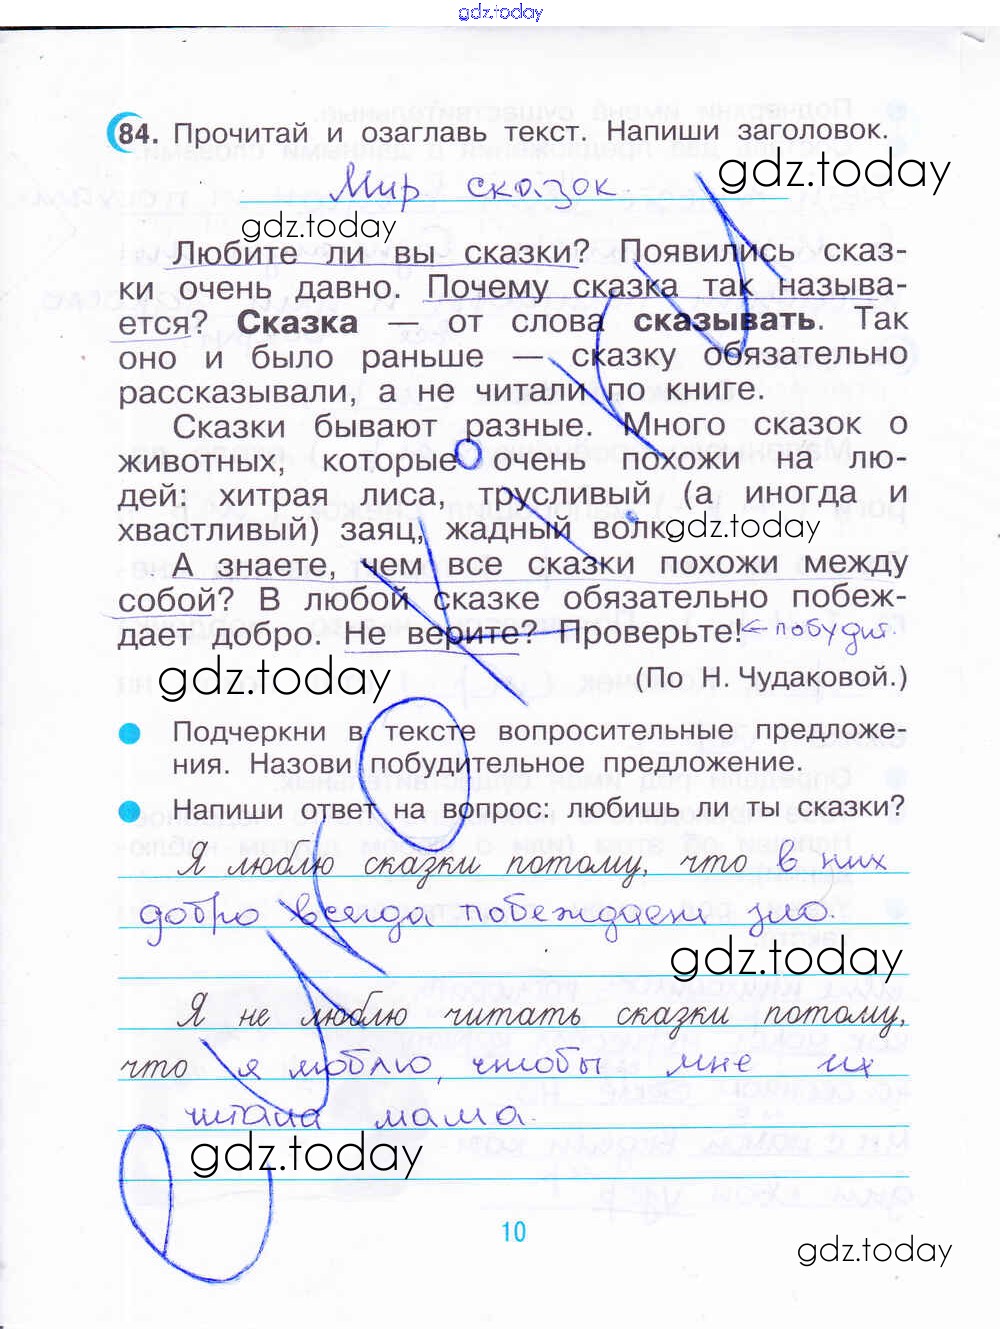 gdz.today
84. Прочитай и озаглавь текст. Напиши заголовок.
gdz.today
Мир сказок
gdz.today
Любите ли вы сказки? Появились сказ-
ки очень давно. Почему сказка так называ-
ется? Сказка — от слова сказывать. Так
оно и было раньше — сказку обязательно
рассказывали, а не читали по книге.
Сказки бывают разные. Много сказок о
животных, которые очень похожи на лю-
дей: хитрая лиса, трусливый (а иногда и
хвастливый) заяц, жадный волк.
gdz.today
А знаете, чем все сказки похожи между
собой? В любой сказке обязательно побеж-
дает добро. Не верите? Проверьте! ← побудит.
gdz.today
(По Н. Чудаковой.)
Подчеркни в тексте вопросительные предложе-
ния. Назови побудительное предложение.
Напиши ответ на вопрос: любишь ли ты сказки?
Я люблю сказки потому, что в них
добро всегда побеждает зло.
gdz.today
Я не люблю читать сказки потому,
что я люблю, чтобы мне их
читала мама.
gdz.today
10
gdz.today